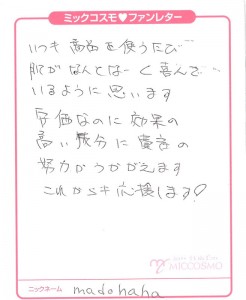 ミックコスモ♥ファンレター
いつも商品を使うたび…
肌がなんとなーく喜んで…
いるように思います
安価なのに効果の
高い成分に貴方の
努力がうかがえます
これからも応援します♡
MICCOSMO
ニックネーム madohaha